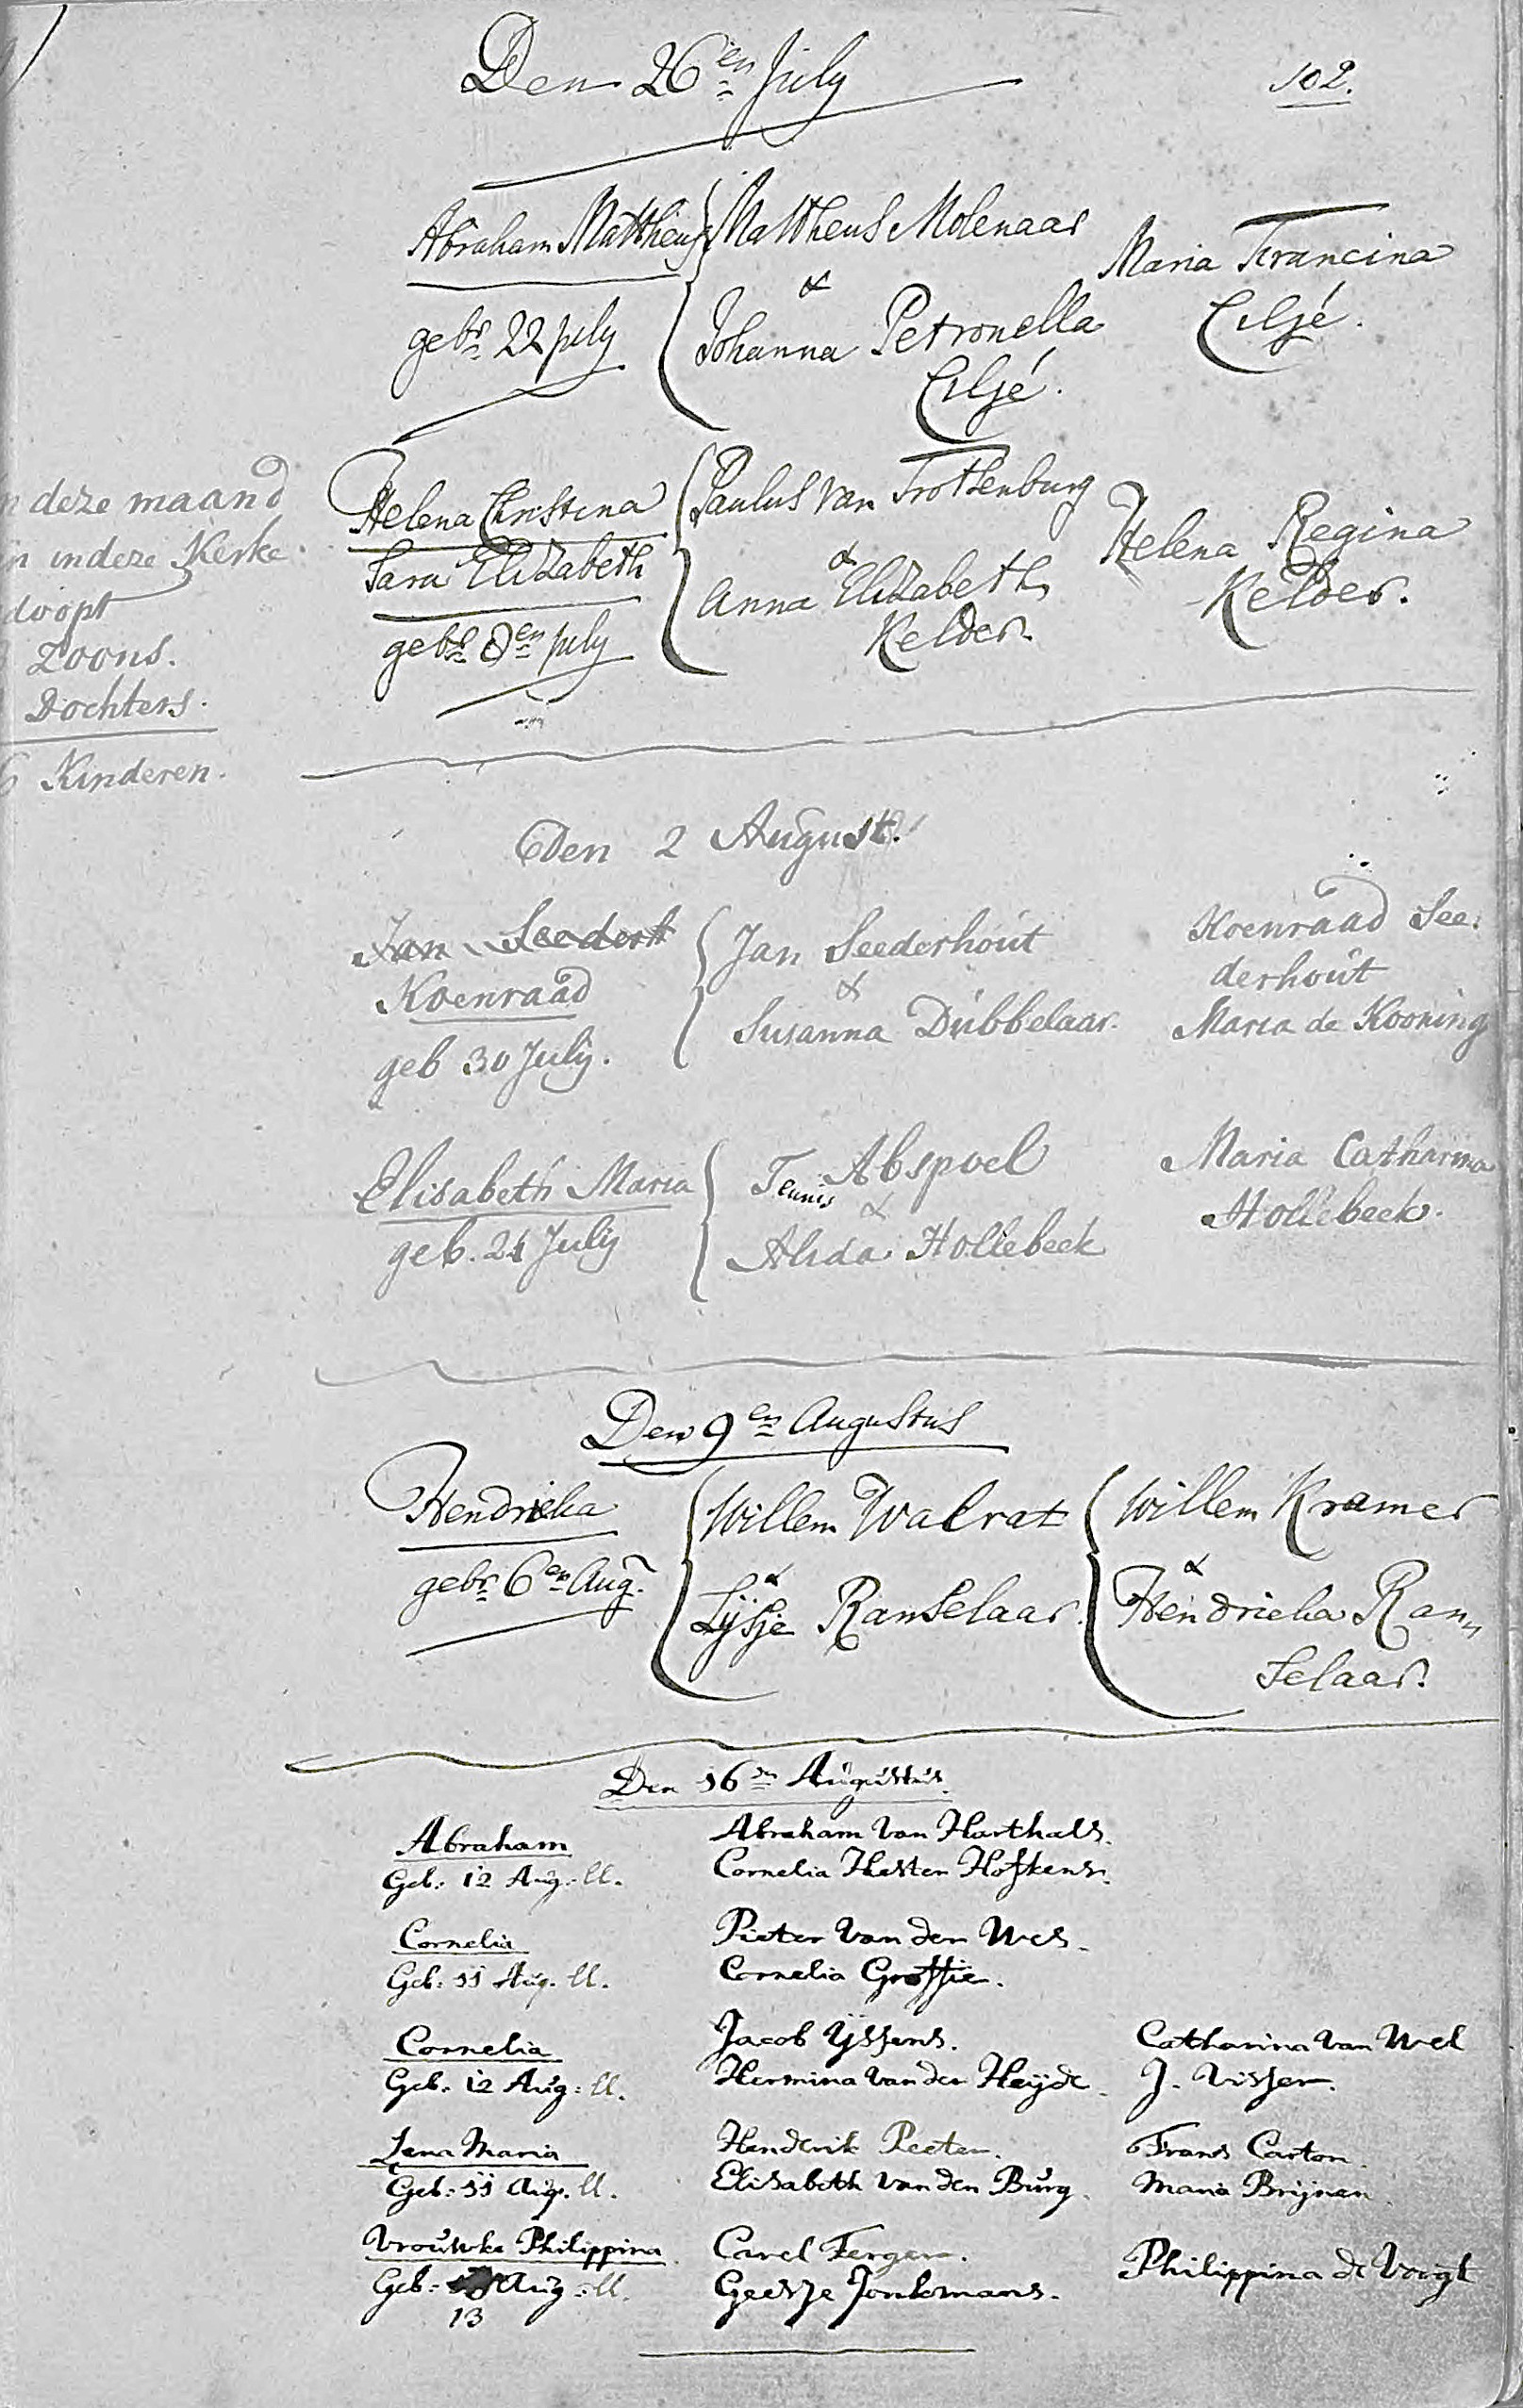 Den 26en July
102.
Abraham Mattheus
gebr 22 july
Mattheus Molenaar
&
Johanna Petronella
Ciljé.
Maria Francina
Ciljé.
Helena Christina
Sara Elizabeth
gebr 8en july
Paulus van Trottenburg
&
Anna Elizabeth
Kelder.
Helena Regina
Kelder.
deze maand
in deze Kerke
doopt
Zoons.
Dochters.
6 Kinderen.
Den 2 August.
Jan Seederh
Koenraad
geb 30 July.
Jan Seederhout
&
Susanna Dubbelaar.
Koenraad See.
derhout
Maria de Kooning
Elisabeth Maria
geb. 21 July
Teunis Abspoel
&
Alida Hollebeek
Maria Catharina
Hollebeek.
Den 9en Augustus
Hendrieka
gebr 6en Aug.
Willem Walrat
&
Lijsje Ranselaar.
Willem Kramer
&
Hendrieka Ran„
selaar.
Den 16en Augustus.
Abraham
Geb: 12 Aug: ll.
Abraham Van Harthals.
Cornelia Hester Hofkens.
Cornelia
Geb: 11 Aug. ll.
Pieter Van der Wel.
Cornelia Groffie.
Cornelia
Geb: 12 Aug: ll.
Jacob Yssens.
Hermina van der Heijde.
Catharina van Wel
J. Visser.
Lena Maria
Geb: 11 Aug. ll.
Hendrik Peeter.
Elisabeth van den Burg.
Frans Carton.
Maria Brijnen.
Vrouwke Philippina
Geb: Aug: ll.
13
Carel Ferger.
Geesje Jonkmans.
Philippina de Voogt